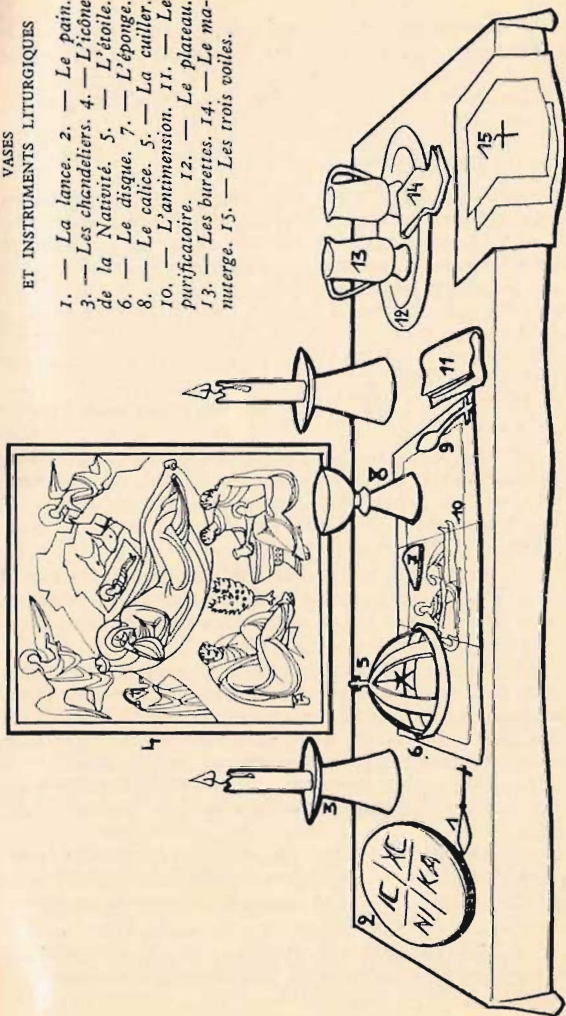 VASES
ET INSTRUMENTS LITURGIQUES
1. — La lance. 2. — Le pain.
3. — Les chandeliers. 4. — L'icône
de la Nativité. 5. — L'étoile.
6. — Le disque. 7. — L'éponge.
8. — Le calice. 5. — La cuiller.
10. — L'antimension. 11. — Le
purificatoire. 12. — Le plateau.
13. — Les burettes. 14. — Le ma-
nuterge. 15. — Les trois voiles.
4
2
IC XC
NI KA
1
3
5
6.
7
8
9
10
11
12
13
14
15